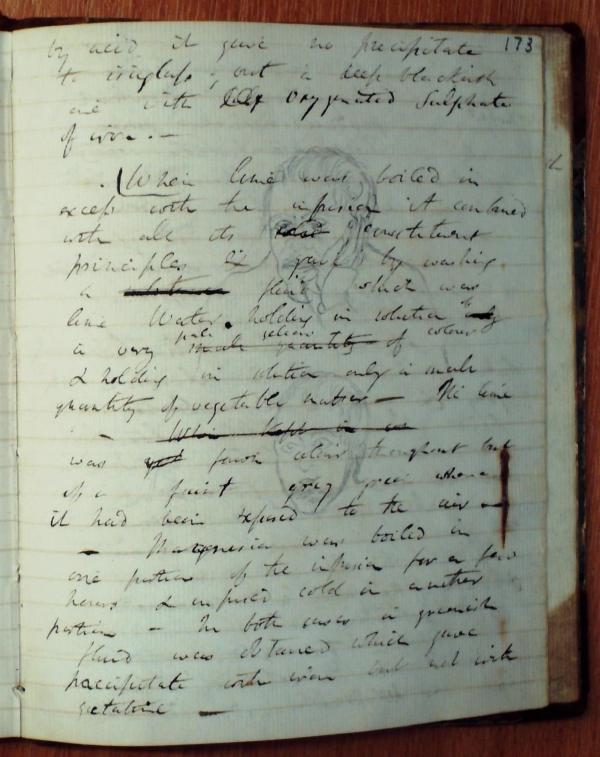 173
by acid it gave no precipitate
to isinglass; but a deep blackish
one with oxygenated Sulphate
of iron. —
. (When lime was boiled in
excess with the infusion it combined
with all its constituent
principles & gave by washing
a substance fluid which was
lime Water. holding in solution
pale yellow
a very small quantity of colour
& holding in solution only a small
quantity of vegetable matter — The lime
— When kept in
was fawn colour throughout but
of a faint grey green where
it had been exposed to the air —
— Magnesia was boiled in
one portion of the infusion for a few
hours & infused cold in another
portion — In both cases a greenish
fluid was obtained which gave
precipitate with iron but not with
gelatine —